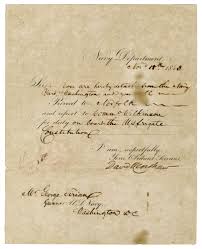 Navy Department,
Nov. 18th 1843
Sir,
you are hereby detached from the Navy
Yard Washington and you will
Proceed to Norfolk
and report to Comm
for duty on board the Frigate
Constitution
I am, respectfully
Your Obedient Servant
David Henshaw
Mr George
Gunner U.S. Navy
Washington D.C.